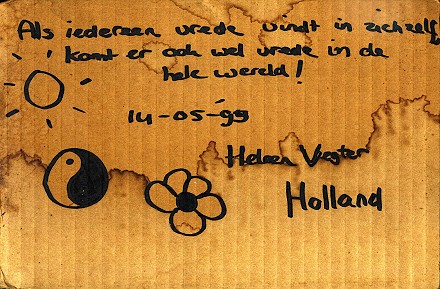 Als iedereen vrede vindt in zichzelf,
komt er ook wel vrede in de
hele wereld!
14-05-95
Heleen
Holland